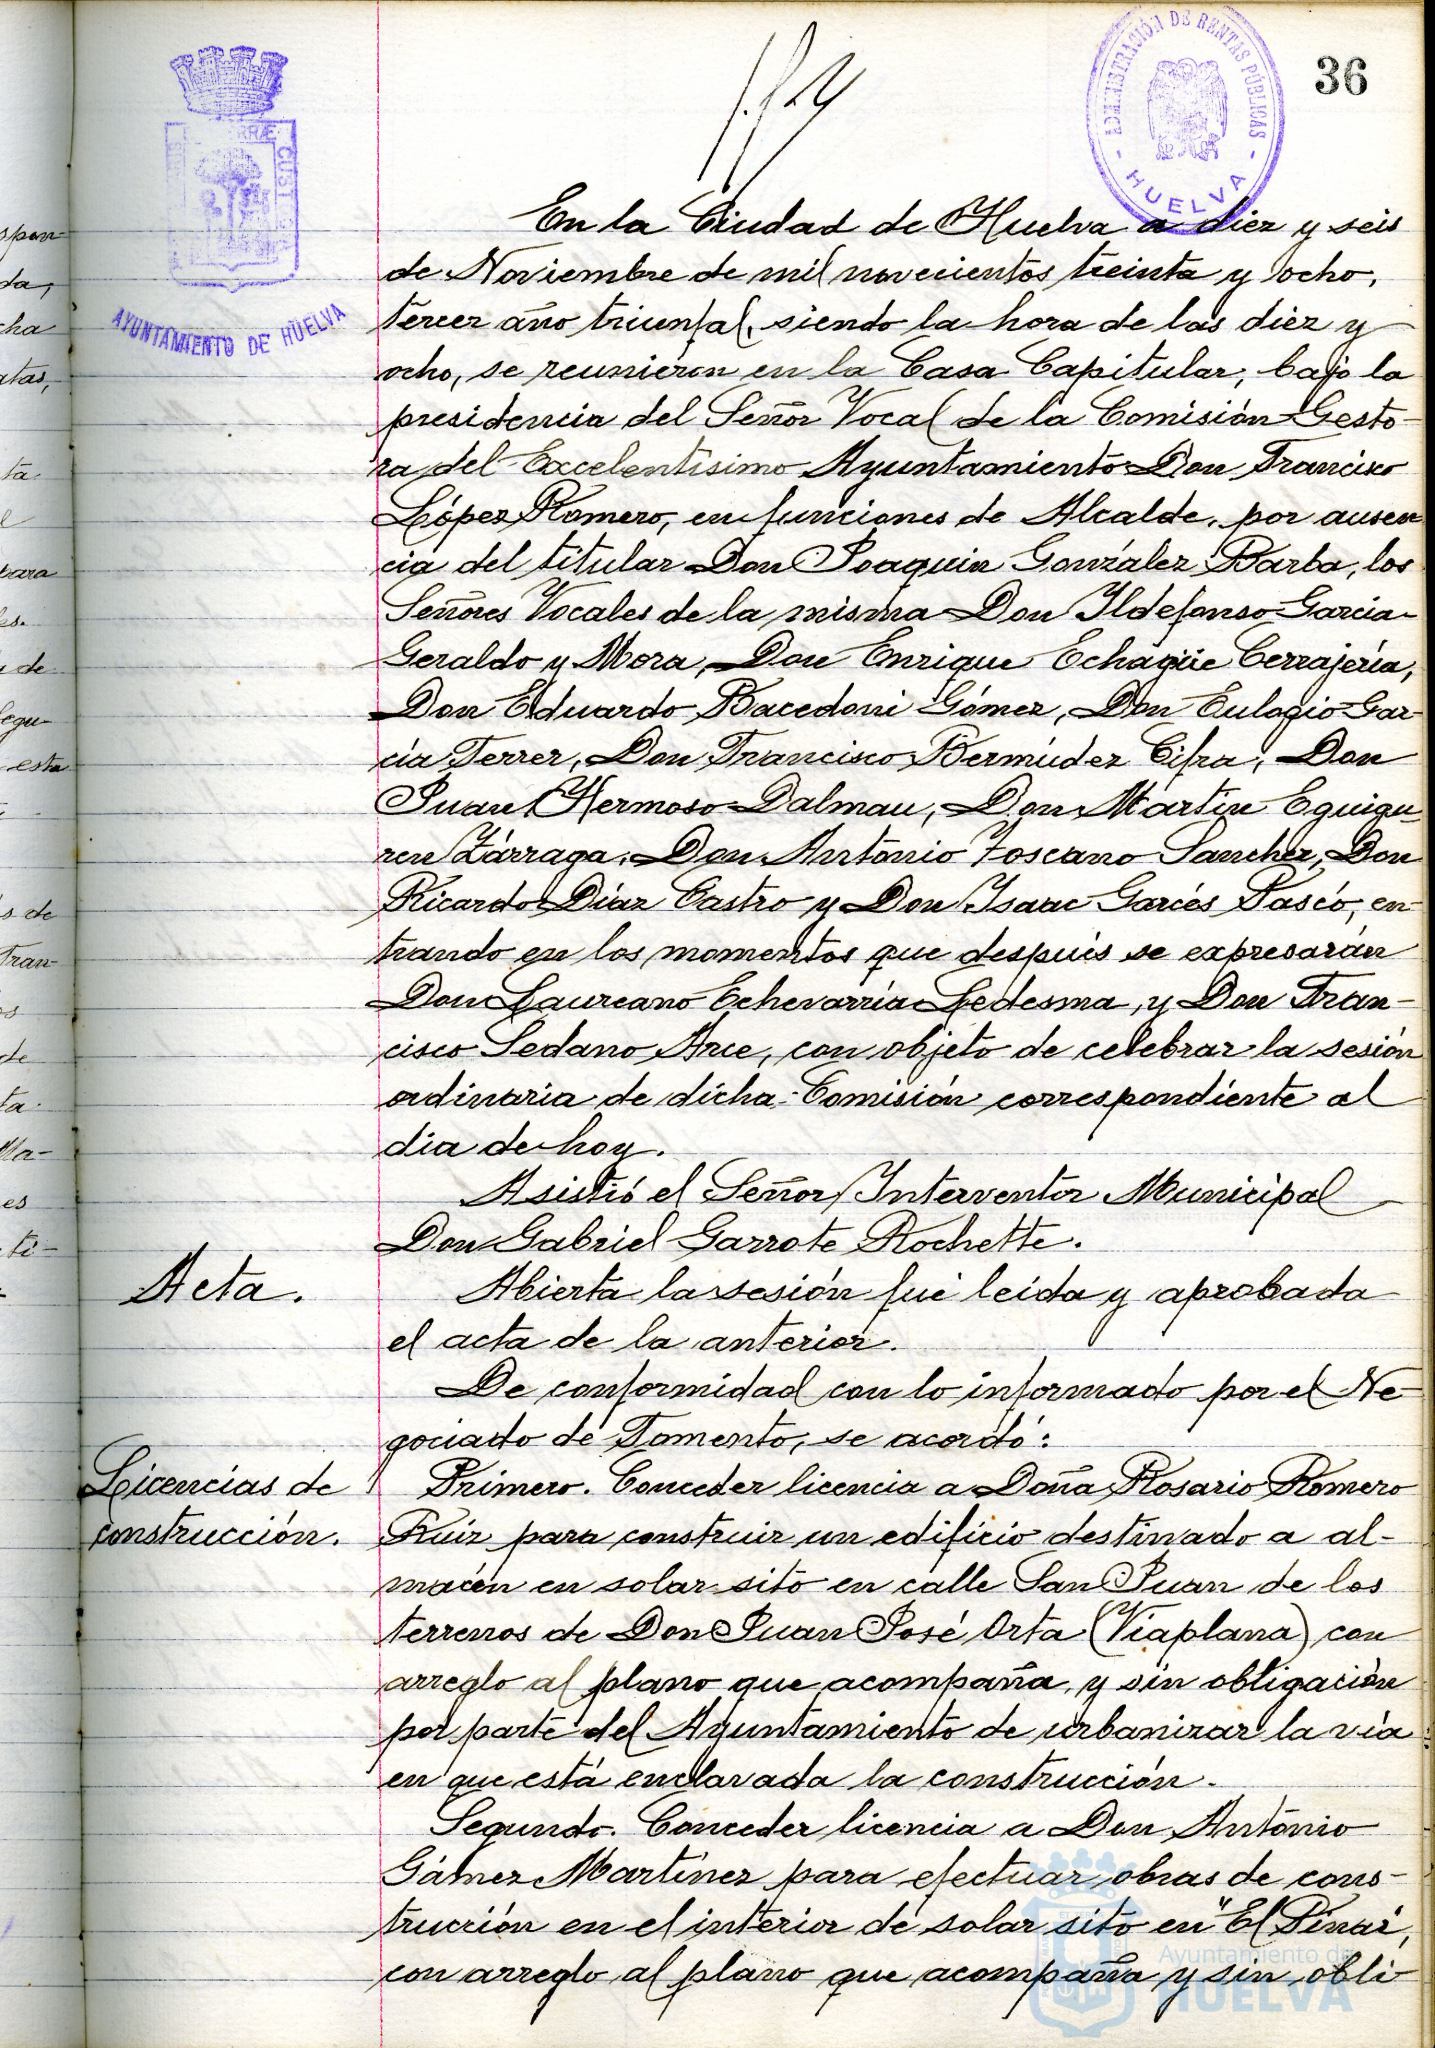 36
ADMINISTRACIÓN DE RENTAS PÚBLICAS
HUELVA
CUST
AYUNTAMIENTO DE HUELVA
En la Ciudad de Huelva a diez y seis
de Noviembre de mil novecientos treinta y ocho,
tercer año triunfal, siendo la hora de las diez y
ocho, se reunieron en la Casa Capitular, bajo la
presidencia del Señor Vocal de la Comisión Gesto-
ra del Excelentísimo Ayuntamiento Don Francisco
López Romero, en funciones de Alcalde, por ausen
cia del titular Don Joaquin González Barba, los
Señores Vocales de la misma Don Ildefonso Garcia-
Geraldo y Mora, Don Enrique Echagüe Cerrajería,
Don Eduardo Bacedoni Gómez, Don Eulogio Gar-
cía Ferrer, Don Francisco Bermúdez Cifra, Don
Juan Hermoso Dalmau, Don Martín Eguigu-
ren Zárraga, Don António Toscano Sanchez, Don
Ricardo Díaz Castro y Don Isaac Garcés Pascó, en-
trando en los momentos que después se expresarán
Don Laureano Echevarría Ledesma, y Don Fran-
cisco Sedano Arce, con objeto de celebrar la sesión
ordinaria de dicha Comisión correspondiente al
dia de hoy.
Asistió el Señor Interventor Municipal
Don Gabriel Garrote Rochette.
Acta.
Abierta la sesión fué leida y aprobada
el acta de la anterior.
De conformidad con lo informado por el Ne-
gociado de Fomento, se acordó:
Licencias de
construcción.
Primero. Conceder licencia a Doña Rosario Romero
Ruiz para construir un edificio destinado a al-
macén en solar sito en calle San Juan de los
terrenos de Don Juan José Orta (Viaplana) con
arreglo al plano que acompaña, y sin obligación
por parte del Ayuntamiento de urbanizar la vía
en que está enclavada la construcción.
Segundo. Conceder licencia a Don António
Gámez Martínez para efectuar obras de cons-
trucción en el interior de solar sito en "El Pinar",
con arreglo al plano que acompaña y sin obli-
Ayuntamiento de
HUELVA
spon-
da,
cha
atas,
ta
para
les.
y de
segu-
esta
s de
Fran-
os
de
ta
Ma-
es
ti-